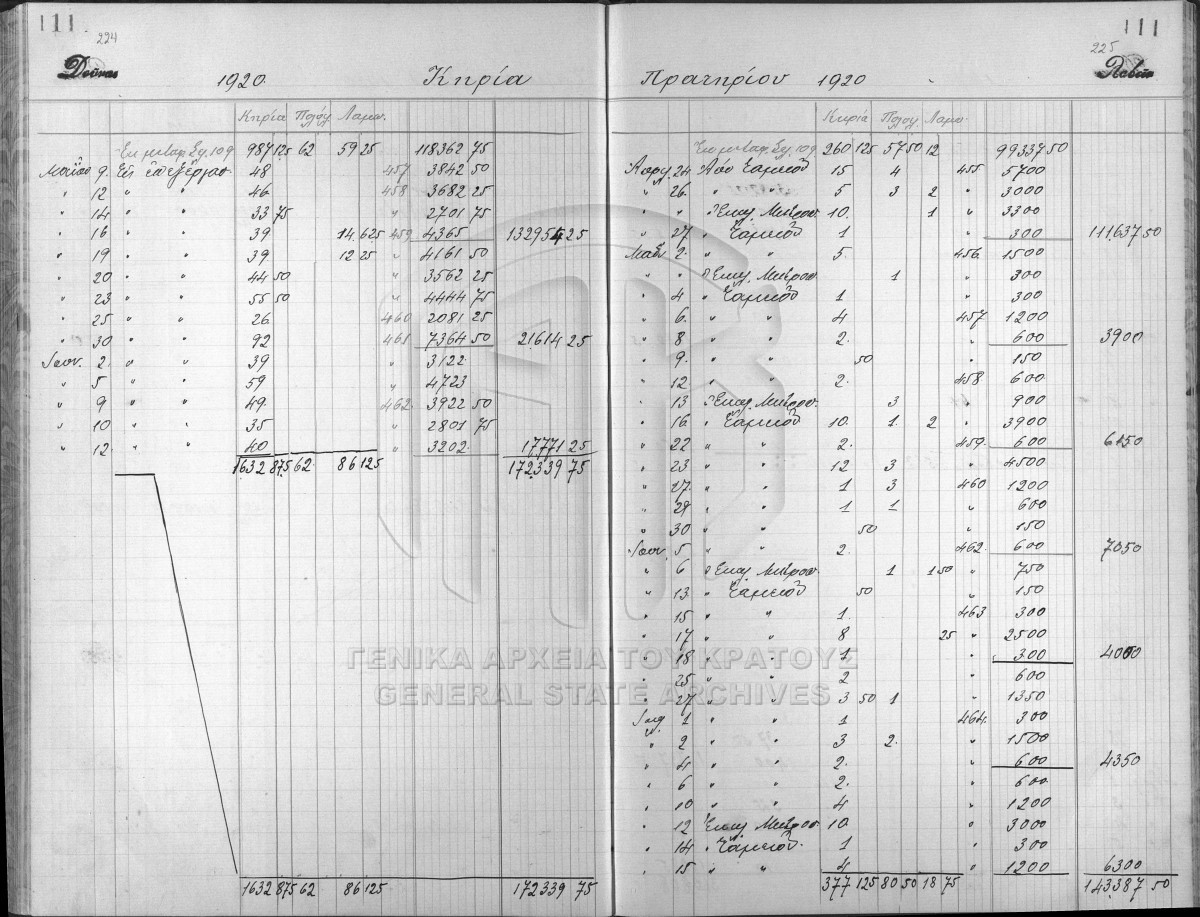 111
224
1920 Κηρία
Κηρία Πολυ Λαμω.
Εκ μεταφ. Σελ. 109 987 125 62 59 25 118362 75
Μαΐου 9. Εις επεξέργασ 48 457 3842 50
" 12 " " 46 458 3682 25
" 14 " " 33 75 " 2701 75
" 16 " " 39 14.625 459 4365 132954 25
" 19 " " 39 12 25 " 4161 50
" 20 " " 44 50 " 3562 25
" 23 " " 55 50 " 4444 75
" 25 " " 26 460 2081 25
" 30 " " 92 461 7364 50 21614 25
Ιουν. 2. " " 39 " 3122
" 5 " " 59 " 4723
" 9 " " 49 462 3922 50
" 10 " " 35 " 2801 75
" 12. " " 40 " 3202 17771 25
1632 875 62 86 125 172339 75
1632 875 62 86 125 172339 75
111
225
Πρατηρίου 1920
Κηρία Πολυ Λαμω
Εκ μεταφ. Σελ. 109 260 125 57 50 12 99337 50
Απρ. 24 Από Ταμείου 15 4 455 5700
" 26 " " 5 3 2 " 3000
" " " Εκκλ. Μητροπ. 10. 1 " 3300
" 27 " Ταμείου 1 " 300 111.637 50
Μαΐου 2. " " 5. 456 1500
" " " Εκκλ. Μητροπ. 1 " 300
" 4 " Ταμείου 1 " 300
" 6. " " 4 457 1200
" 8 " " 2. " 600 3900
" 9. " " 50 " 150
" 12 " " 2. 458 600
" 13 " Εκκλ. Μητροπ. 3 " 900
" 16 " Ταμείου 10. 1. 2 " 3900
" 22 " " 2. 459 600 6150
" 23 " " 12 3 " 4500
" 27. " " 1 3 460 1200
" 29 " " 1 1 " 600
" 30 " " 50 " 150
Ιουν. 5 " " 2. 462. 600 7050
" 6 " Εκκλ. Μητροπ. 1 1 50 " 750
" 13. " Ταμείου 50 " 150
" 15 " " 1. 463 300
" 17 " " 8 25 " 2500
" 18 " " 1 " 300 4000
" 25 " " 2 " 600
" 27 " " 3 50 1 " 1350
Ιουλ 1 " " 1 464 300
" 2 " " 3 2. " 1500
" 4 " " 2. " 600 4350
" 6 " " 2. " 600
" 10 " " 4 " 1200
" 12 Εκκλ. Μητροπ 10. " 3000
" 14 " Ταμείου 1 " 300
" 15 " " 4 " 1200 6300
377 125 80 50 18 75 143.387 50
ΓΕΝΙΚΑ ΑΡΧΕΙΑ ΤΟΥ ΚΡΑΤΟΥΣ
GENERAL STATE ARCHIVES